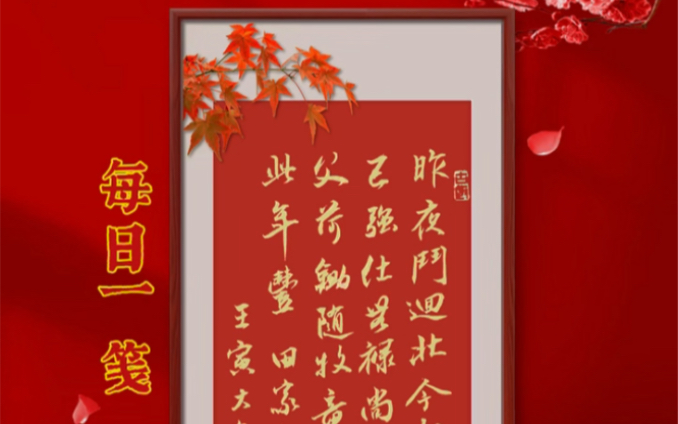 每日一笺
昨夜鬥迴北今
已强仕无禄尚
父荷鋤随牧童
此年豐 田家
壬寅大